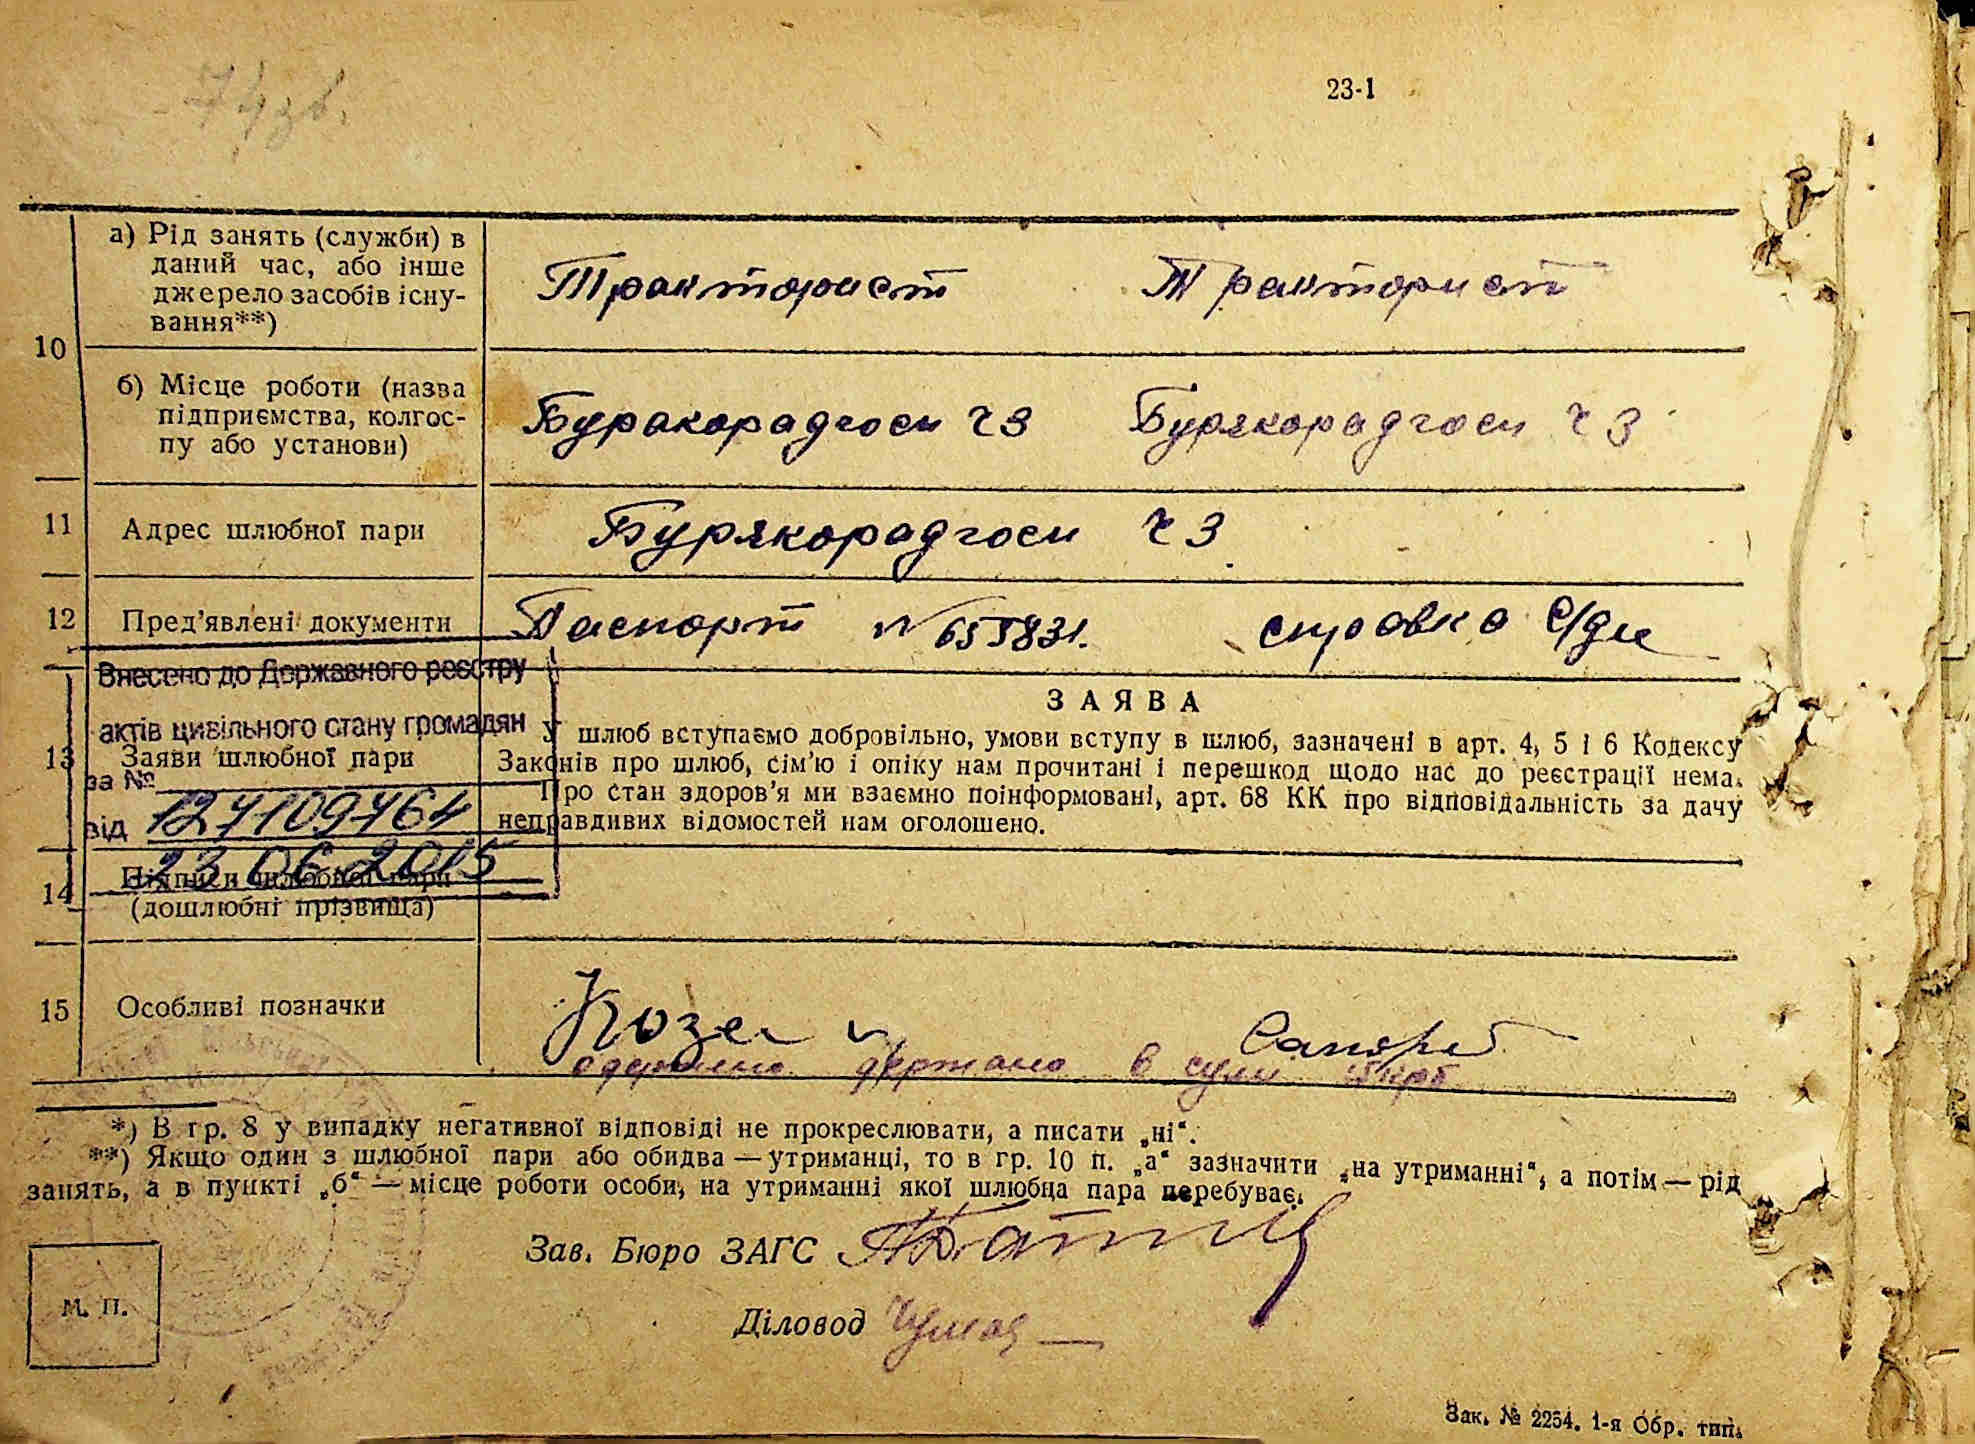 23-1
10
а) Рід занять (служби) в
даний час, або інше
джерело засобів існу-
вання**)
Тракторист Тракторист
б) Місце роботи (назва
підприємства, колгос-
пу або установи)
Буракорадгосп ч 3 Бурякорадгосп ч 3
11
Адрес шлюбної пари
Бурякорадгосп ч 3
12
Пред'явлені документи
Паспорт № 655831. справка с/ди
Внесено до Державного реєстру
актів цивільного стану громадян
за №
124109464
від
23 06 2015
13
Заяви шлюбної пари
ЗАЯВА
У шлюб вступаємо добровільно, умови вступу в шлюб, зазначені в арт. 4, 5 і 6 Кодексу
Законів про шлюб, сім'ю і опіку нам прочитані і перешкод щодо нас до реєстрації нема.
Про стан здоров'я ми взаємно поінформовані, арт. 68 КК про відповідальність за дачу
неправдивих відомостей нам оголошено.
14
Підписи шлюбної пари
(дошлюбні прізвища)
15
Особливі позначки
держано в сумі
*) В гр. 8 у випадку негативної відповіді не прокреслювати, а писати „ні“.
**) Якщо один з шлюбної пари або обидва — утриманці, то в гр. 10 п. „а“ зазначити „на утриманні“, а потім — рід
занять, а в пункті „б“ — місце роботи особи, на утриманні якої шлюбна пара перебуває.
Зав. Бюро ЗАГС
Діловод
М. П.
Зак. № 2254. 1-я Обр. тип.